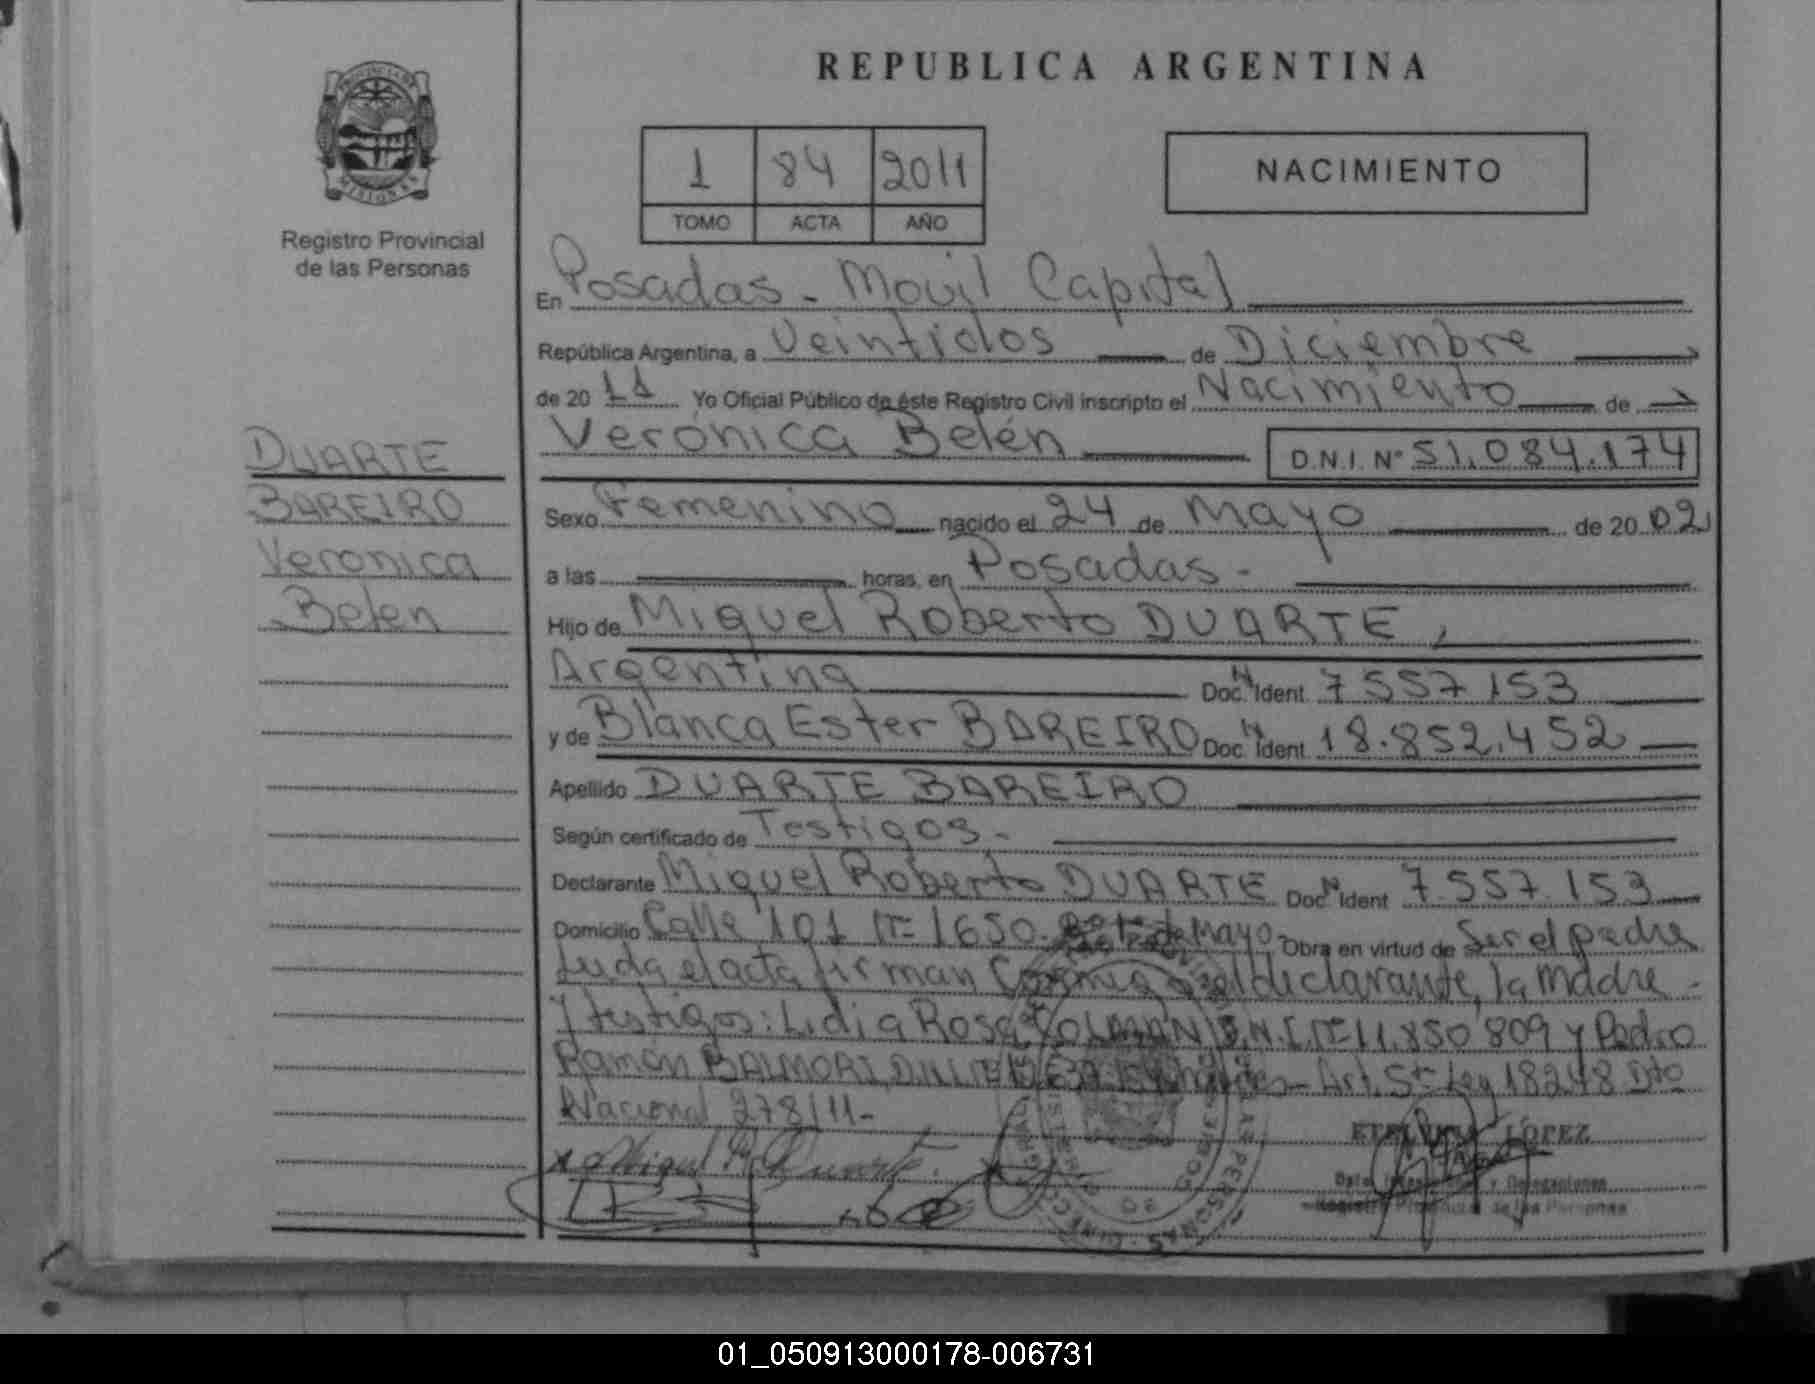 REPUBLICA ARGENTINA
PROVINCIA DE
MISIONES
Registro Provincial
de las Personas
1 84 2011
TOMO ACTA AÑO
NACIMIENTO
En Posadas - Movil Capital
República Argentina, a Veintidos de Diciembre
de 20 11 Yo Oficial Público de éste Registro Civil inscripto el Nacimiento de
Verónica Belén D.N.I. Nº 51.084.174
DUARTE
BAREIRO
Veronica
Belen
Sexo Femenino nacido el 24 de Mayo de 20 02
a las horas, en Posadas -
Hijo de Miguel Roberto DUARTE,
Argentina Doc. N Ident. 7557153
y de Blanca Ester BAREIRO Doc. N Ident. 18.852.452
Apellido DUARTE BAREIRO
Según certificado de Testigos.-
Declarante Miguel Roberto DUARTE Doc. N Ident 7.557.153
Domicilio Calle 101 Nº 1650 de Mayo- Obra en virtud de Ser el padre
Leida el acta firman el declarante, la madre -
y testigos: Lidia Rosa COLMAN D.N.I. Nº 11.850 809 y Pedro
Ramón BALMORI D.N.I. Nº - Art. 5º Ley 18248 Dto
Nacional 278/11-
Miguel R. Duarte.
LÓPEZ
y Delegaciones
Registro Provincial de las Personas
01_050913000178-006731